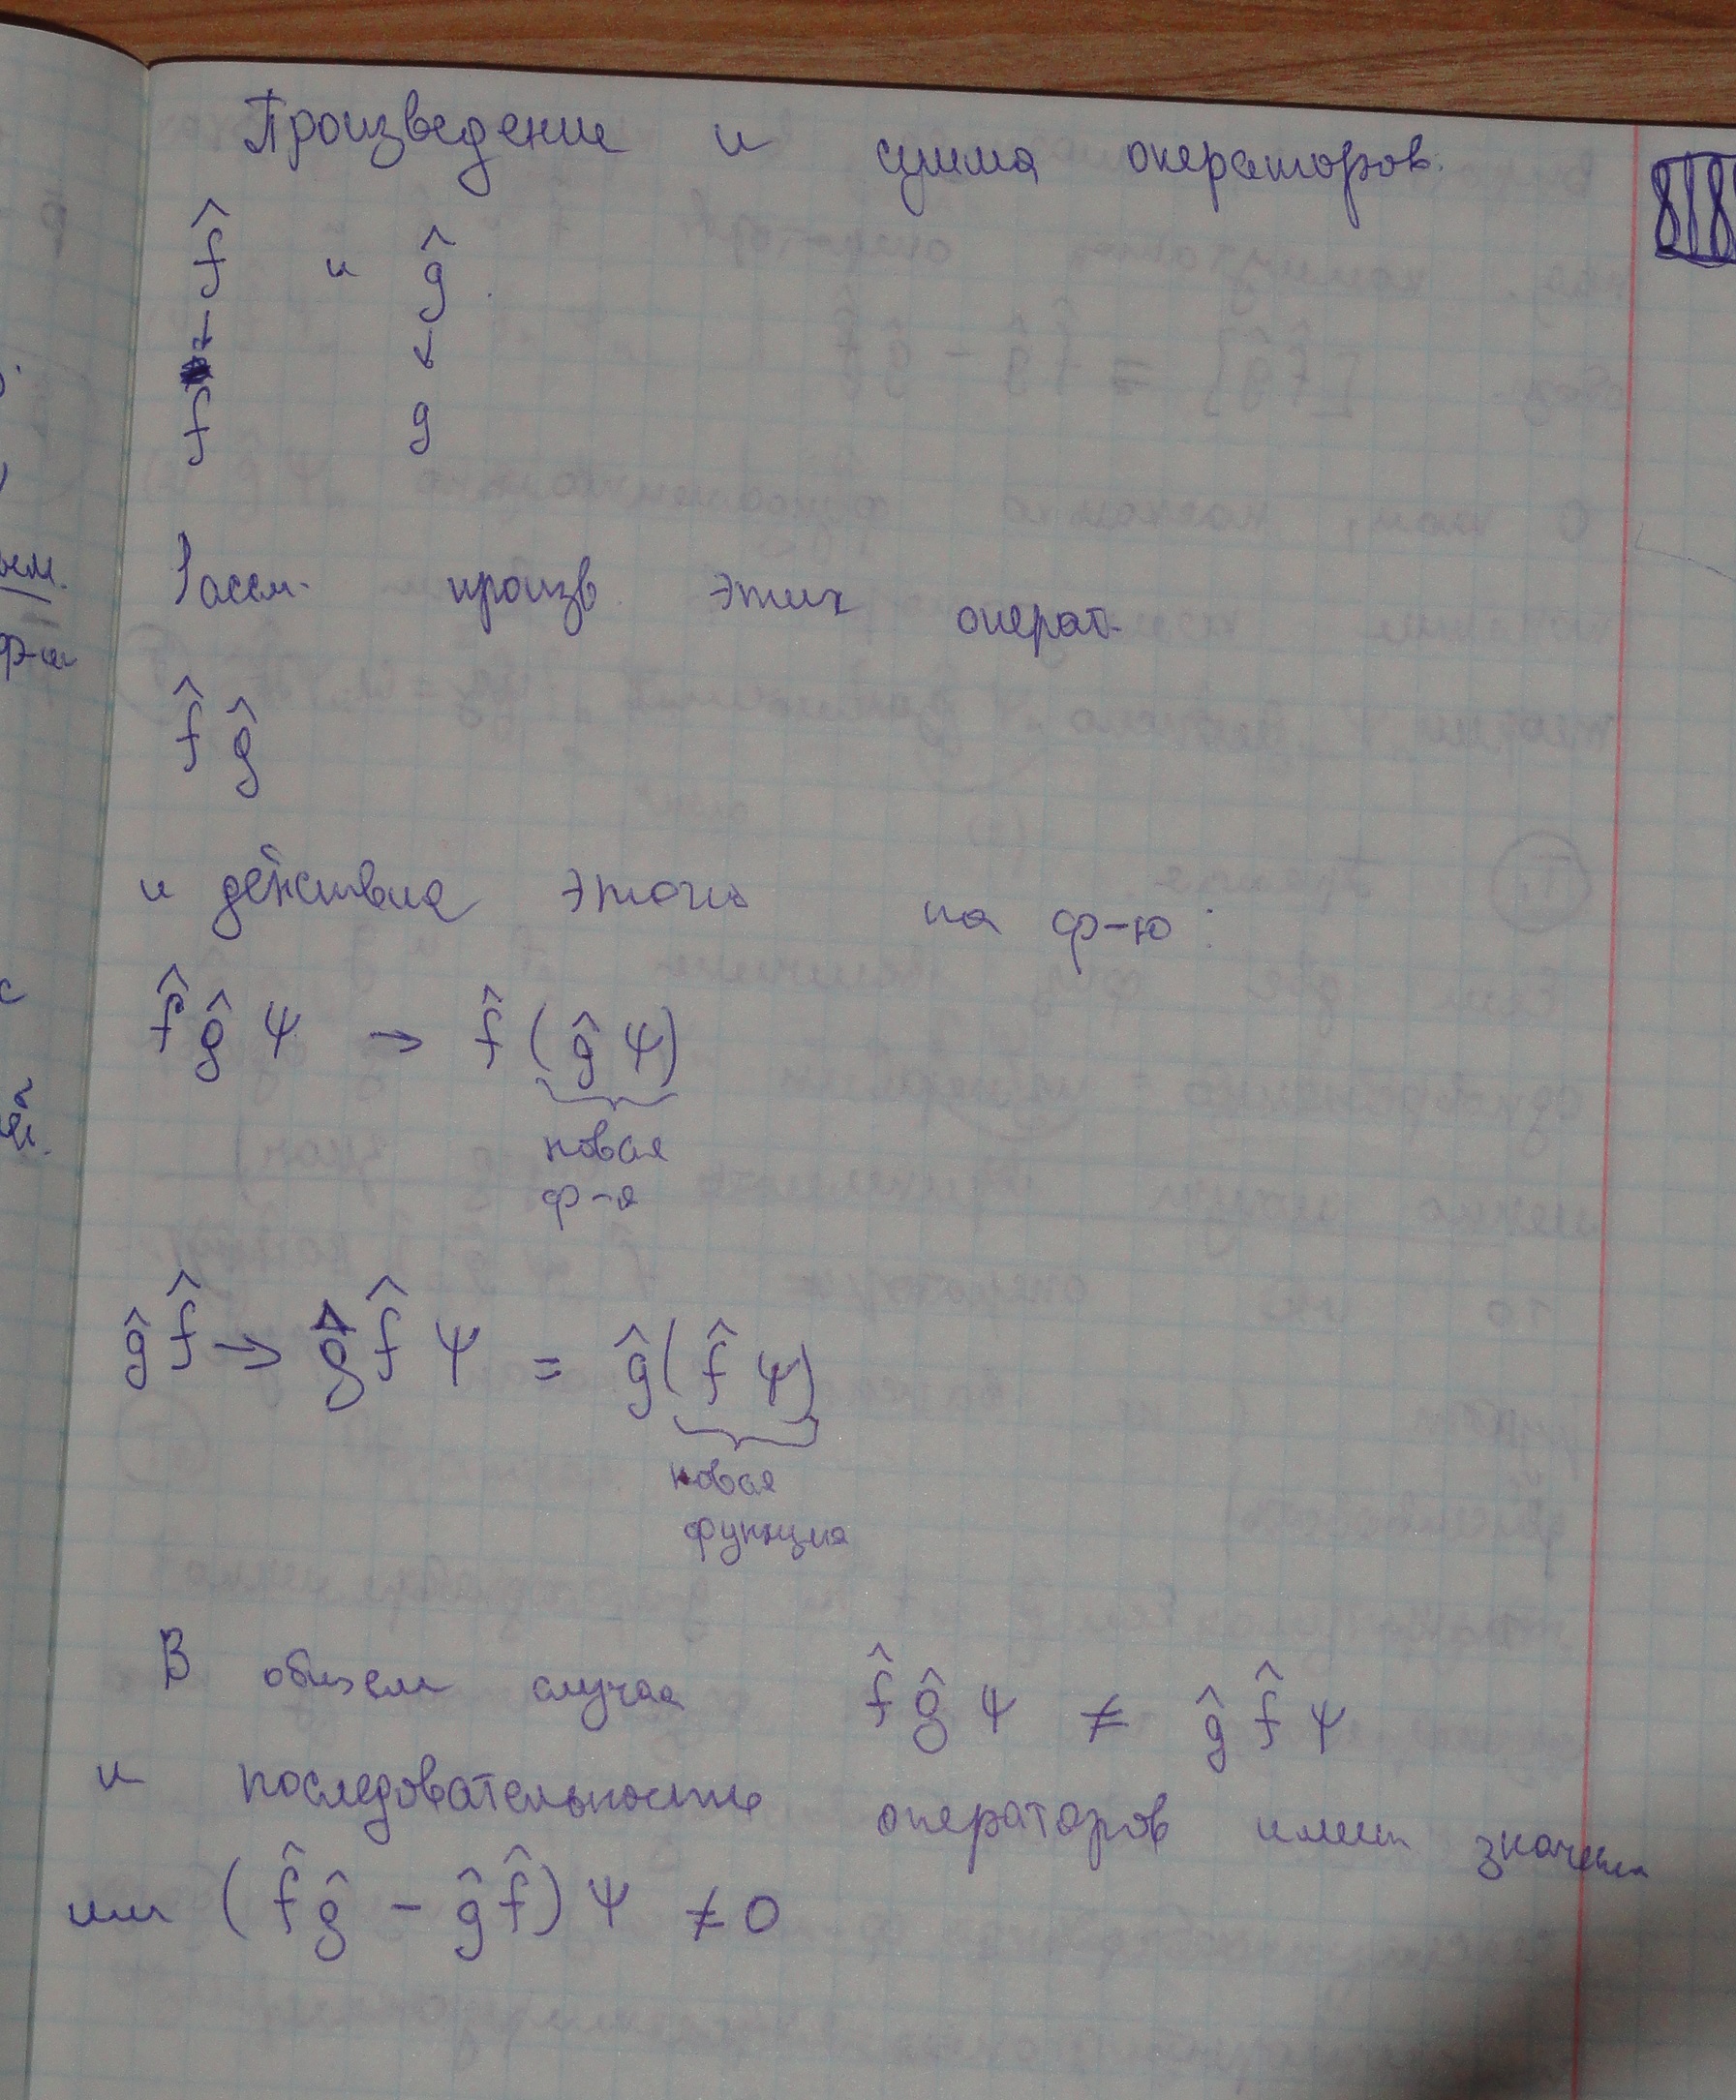 Произведение и сумма операторов.
818
f̂ и ĝ.
↓ ↓
f g
Рассм. произв этих операт.
f̂ ĝ
и действие этого на ф-ю:
f̂ ĝ ψ → f̂ (ĝ ψ)
новая
ф-я
ĝ f̂ → ĝ f̂ ψ = ĝ(f̂ ψ)
новая
функция
В общем случае f̂ ĝ ψ ≠ ĝ f̂ ψ
и последовательность операторов имеет значение
или (f̂ ĝ − ĝ f̂) ψ ≠ 0